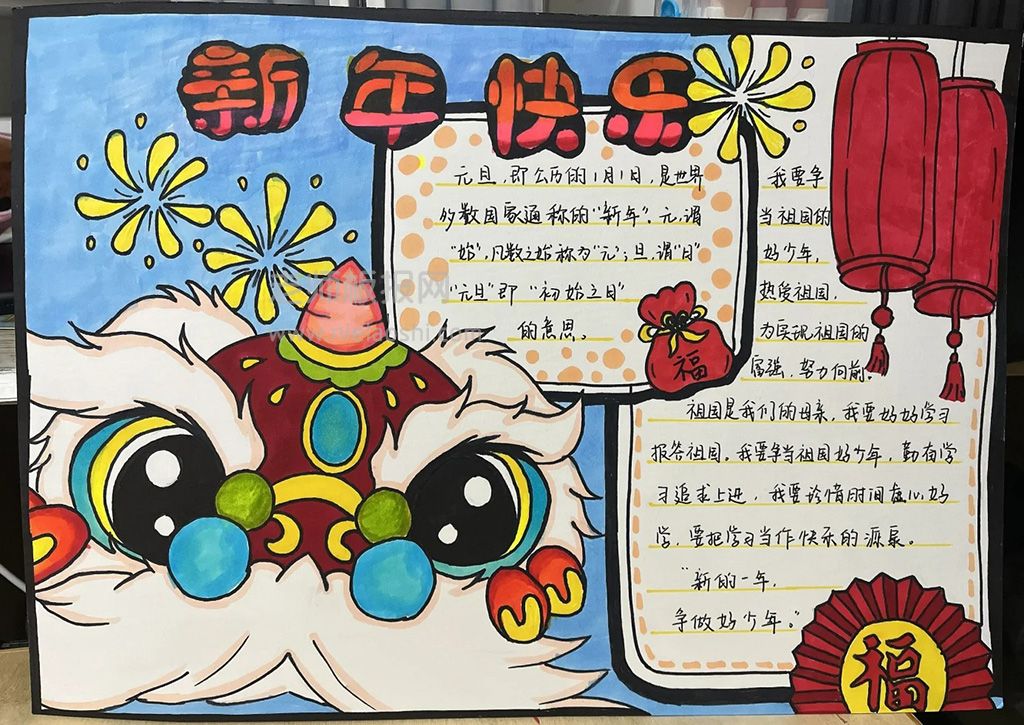 新年快乐
元旦,即公历的1月1日,是世界
多数国家通称的“新年”。元,谓
“始”,凡数之始称为“元”;旦,谓“日”
“元旦”即“初始之日”
的意思。
福
我要争
当祖国的
好少年,
热爱祖国,
为实现祖国的
富强,努力向前。
祖国是我们的母亲,我要好好学习
报答祖国,我要争当祖国好少年,勤奋学
习追求上进,我要珍惜时间虚心好
学,要把学习当作快乐的源泉。
“新的一年,
争做好少年。”
福